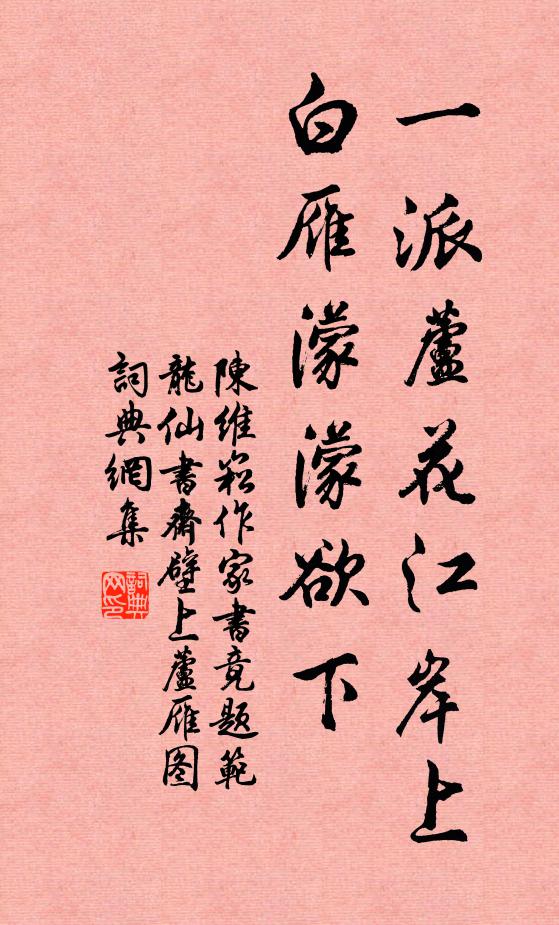 一派蘆花江岸上
白雁濛濛欲下
陳維崧作家書竟題範
龍仙書齋壁上蘆雁图
詞典網集
詞典
网印